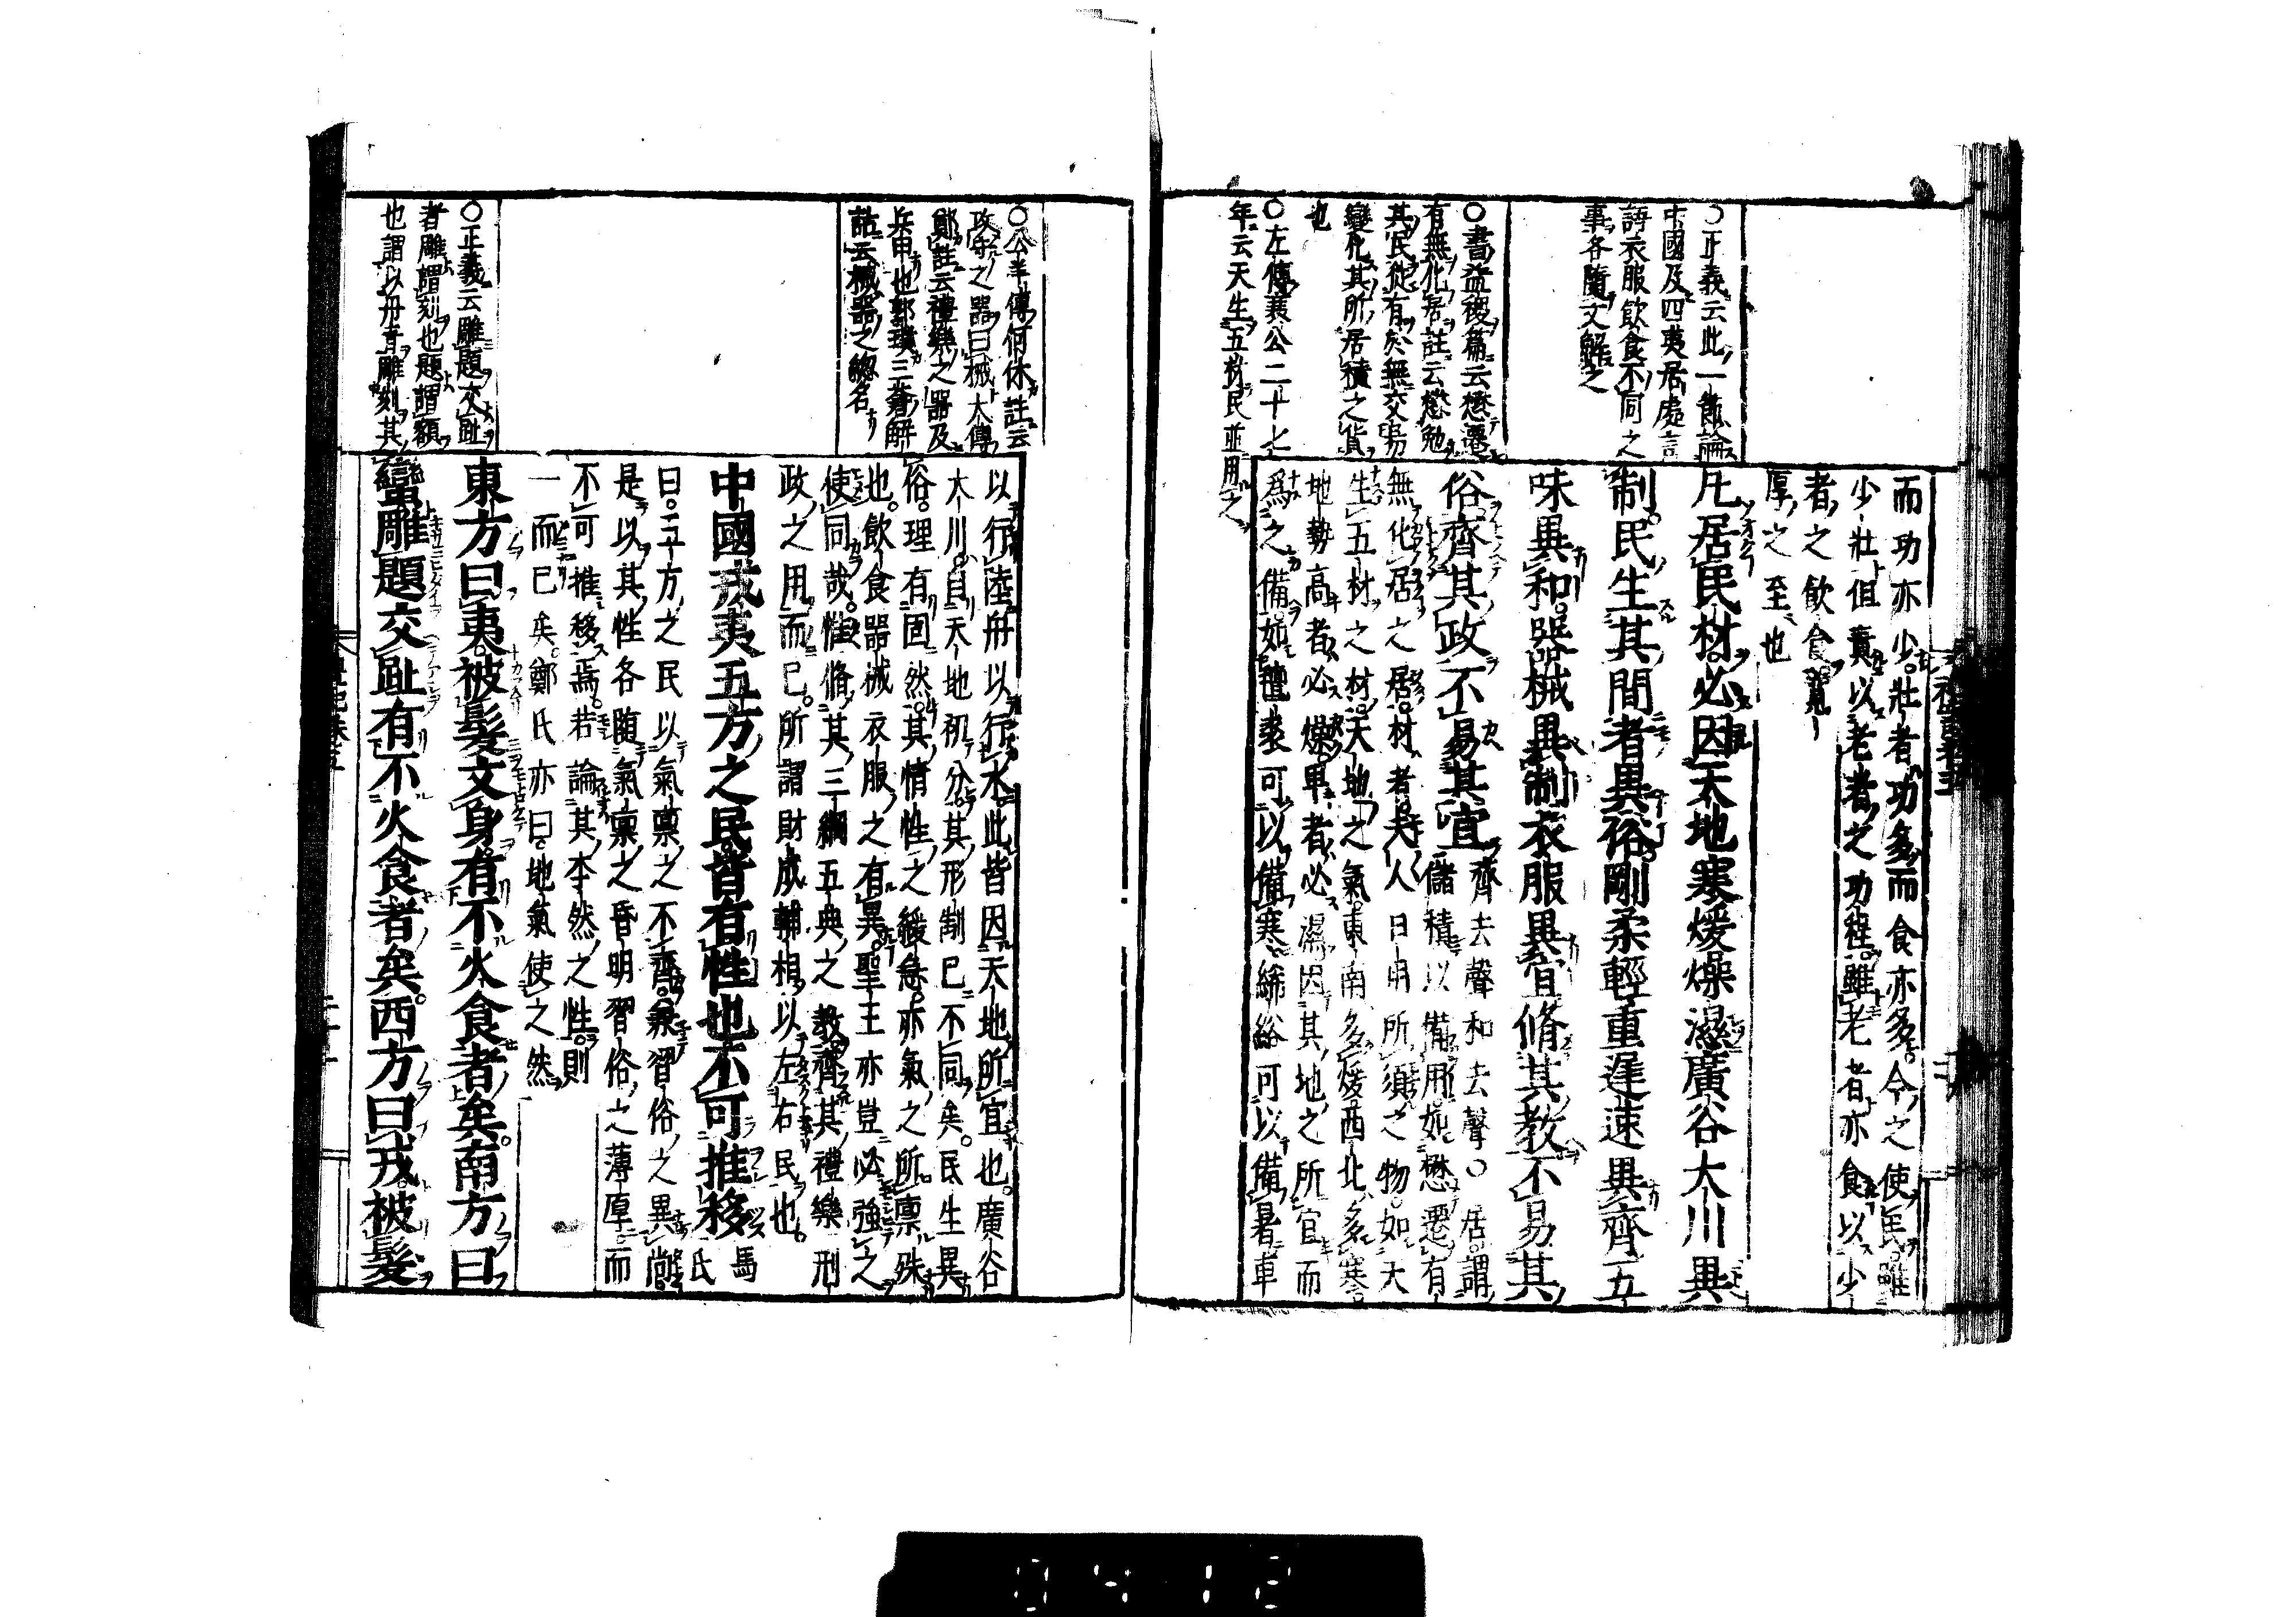 〇正義云此一節論
中國及四夷居處言
語衣服飲食不同之
事各隨文解之
〇書益稷篇云懋遷
有無化居註云懋勉
其民從有於無交易
變化其所居積之貨
也
〇左傳襄公二十七
年云天生五材民並用之
而功亦少壯者功多而食亦多今之使民雖
少壯但責以老者之功程雖老者亦食以少
者之飲食寬
厚之至也
凡居民材必因天地寒煖燥濕廣谷大川異
制民生其間者異俗剛柔輕重遲速異齊五
味異和器械異制衣服異宜脩其教不易其
俗齊其政不易其宜
齊去聲和去聲〇居謂
儲積以備用如懋遷有
無化居之居材者夫人日用所須之物如天
生五材之材天地之氣東南多煖西北多寒
地勢高者必燥卑者必濕因其地之所宜而
為之備如氊裘可以備寒絺綌可以備暑車
〇公羊傳何休註云
攻守之器曰械大傳
鄭註云禮樂之器及
兵甲也郭璞三蒼解
詁云械器之總名
〇正義云雕題交趾
者雕謂刻也題謂額
也謂以丹青雕刻其
以行陸舟以行水此皆因天地所宜也廣谷
大川自天地初分其形制已不同矣民生異
俗理有固然其情性之緩急亦氣之所禀殊
也飲食器械衣服之有異聖王亦豈必強之
使同哉惟脩其三綱五典之教齊其禮樂刑
政之用而已所謂財成輔相以左右民也
中國戎夷五方之民皆有性也不可推移
馬氏
曰五方之民以氣禀之不齊兼習俗之異尚
是以其性各随氣禀之昏明習俗之薄厚而
不可推移焉若論其本然之性則
一而已矣鄭氏亦曰地氣使之然
東方曰夷被髮文身有不火食者矣南方曰
蠻雕題交趾有不火食者矣西方曰戎被髮